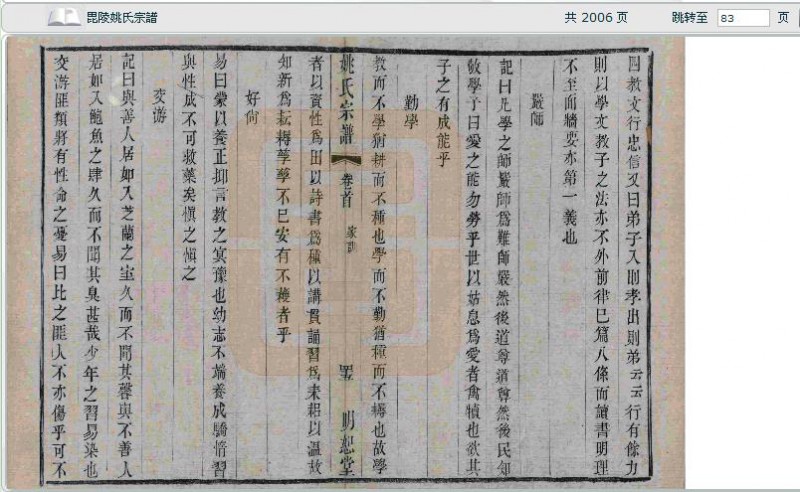 毘陵姚氏宗譜
共 2006 页
跳转至 83 页
四教文行忠信又曰弟子入則孝出則弟云云行有餘力
則以學文教子之法亦不外前律已篇八條而讀書明理
不至面牆要亦第一義也
嚴師
記曰凡學之師嚴師為難師嚴然後道尊道尊然後民知
敬學子曰愛之能勿勞乎世以姑息為愛者禽犢也欲其
子之有成能乎
勤學
教而不學猶耕而不種也學而不勤猶種而不耨也故學
姚氏宗譜 卷首 家訓 明恕堂
者以資性為田以詩書為種以講貫誦習為耒耜以溫故
知新為耘耨孳孳不已安有不穫者乎
好尚
易曰蒙以養正抑言教之宜豫也幼志不端養成驕惰習
與性成不可救藥矣慎之慎之
交游
記曰與善人居如入芝蘭之室久而不聞其馨與不善人
居如入鮑魚之肆久而不聞其臭甚哉少年之習易染也
交游匪類將有性命之憂易曰比之匪人不亦傷乎可不